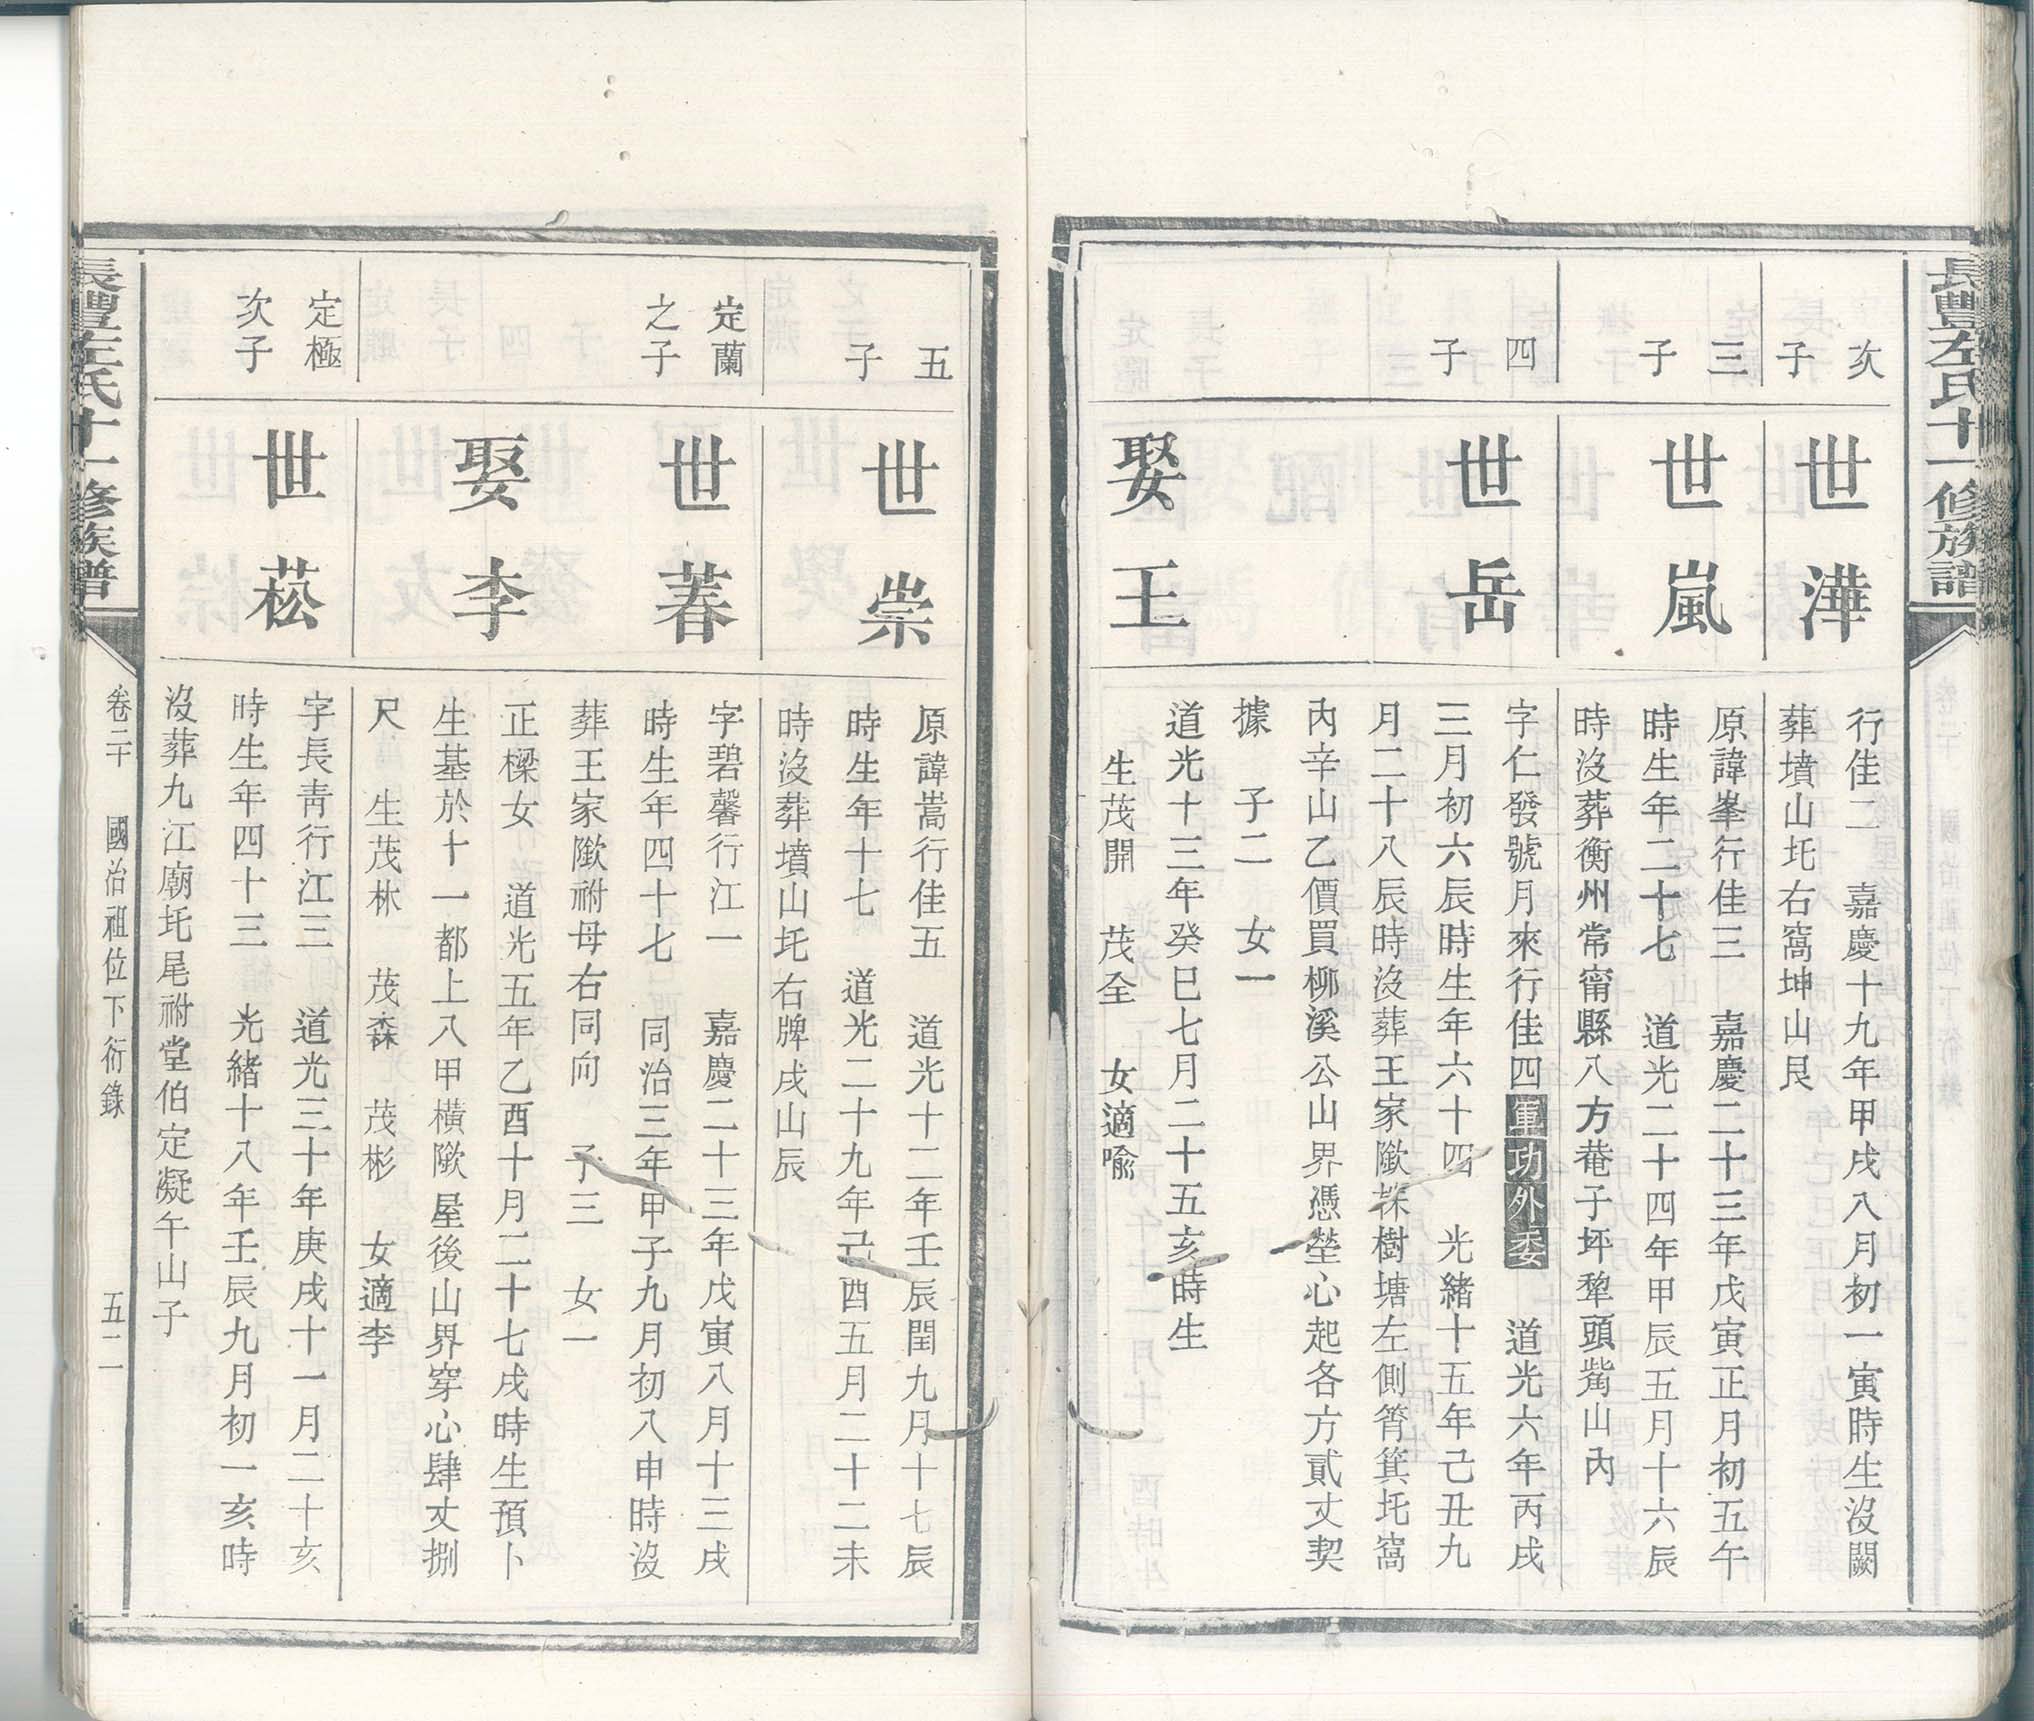 長豐左氏十一修族譜
次子
世澕
行佳二　嘉慶十九年甲戌八月初一寅時生沒闕
葬墳山圫右窩坤山艮
三子
世嵐
原諱峯行佳三　嘉慶二十三年戊寅正月初五午
時生年二十七　道光二十四年甲辰五月十六辰
時沒葬衡州常甯縣八方菴子坪犂頭觜山內
四子
世岳
字仁發號月來行佳四軍功外委　道光六年丙戌
三月初六辰時生年六十四　光緒十五年己丑九
月二十八辰時沒葬王家隞株樹塘左側筲箕圫窩
內辛山乙價買柳溪公山界憑塋心起各方貳丈契
據　子二　女一
娶王
道光十三年癸巳七月二十五亥時生
生茂開　茂全　女適喩
五子
世崇
原諱嵩行佳五　道光十二年壬辰閏九月十七辰
時生年十七　道光二十九年己酉五月二十二未
時沒葬墳山圫右牌戌山辰
定蘭
之子
世萶
字碧馨行江一　嘉慶二十三年戊寅八月十三戌
時生年四十七　同治三年甲子九月初八申時沒
葬王家隞祔母右同向　子三　女一
娶李
正樑女　道光五年乙酉十月二十七戌時生預卜
生基於十一都上八甲橫隞屋後山界穿心肆丈捌
尺　生茂林　茂森　茂彬　女適李
定極
次子
世菘
字長靑行江三　道光三十年庚戌十一月二十亥
時生年四十三　光緒十八年壬辰九月初一亥時
沒葬九江廟圫尾祔堂伯定凝午山子
長豐左氏十一修族譜
卷二十　國治祖位下衍錄　五二